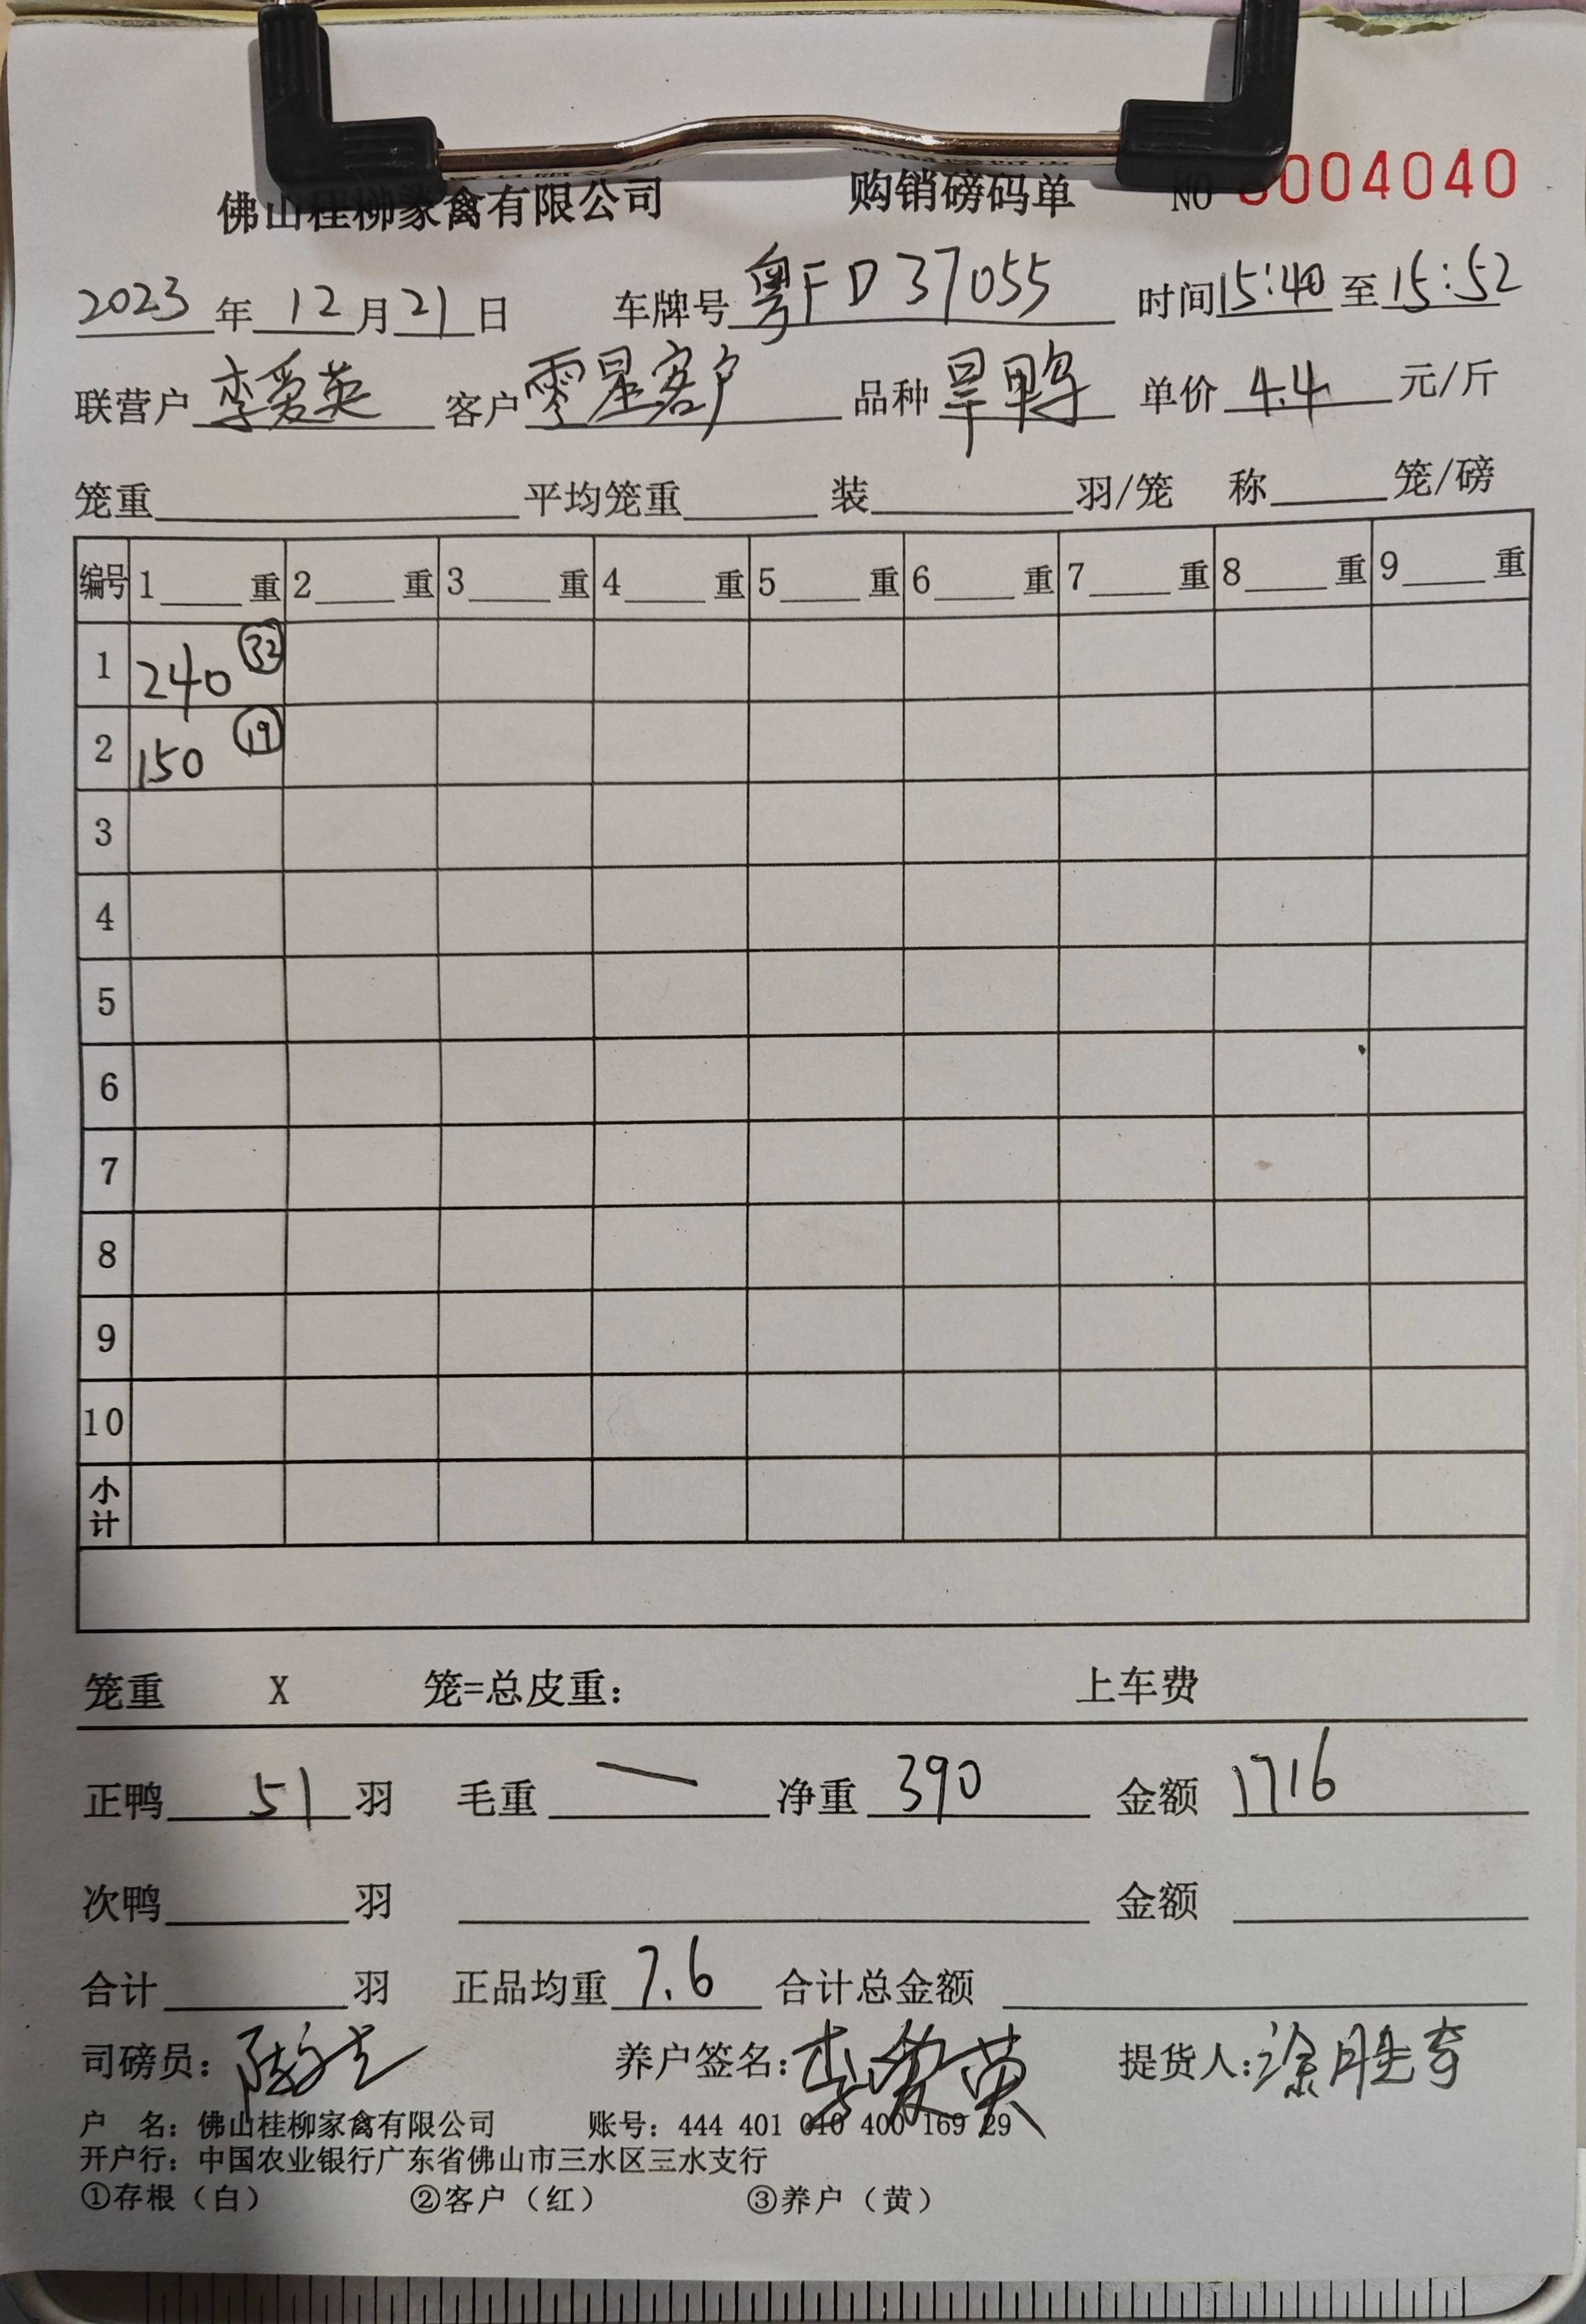 佛山桂柳家禽有限公司 购销磅码单 NO 0004040
2023年12月21日 车牌号粤FD37055 时间15:40至15:52
联营户李爱英 客户零星客户 品种旱鸭 单价4.4元/斤
笼重 平均笼重 装 羽/笼 称 笼/磅
编号 1 重 2 重 3 重 4 重 5 重 6 重 7 重 8 重 9 重
1 240 ㉜
2 150 ⑲
3
4
5
6
7
8
9
10
小计
笼重 X 笼=总皮重: 上车费
正鸭 51 羽 毛重 — 净重 390 金额 1716
次鸭 羽 金额
合计 羽 正品均重 7.6 合计总金额
司磅员: 养户签名:李爱英 提货人:涂胜奇
户 名: 佛山桂柳家禽有限公司 账号: 444 401 040 400 169 29
开户行: 中国农业银行广东省佛山市三水区三水支行
①存根（白） ②客户（红） ③养户（黄）